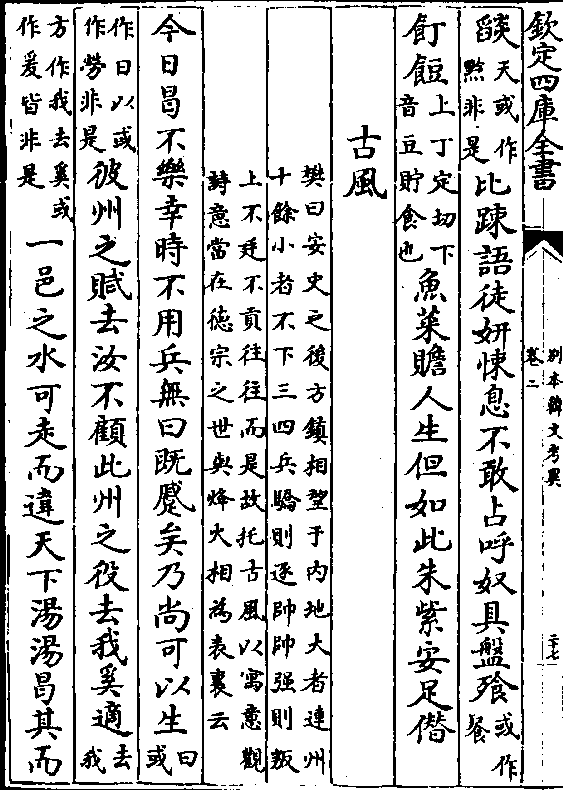 欽定四庫全書
別本韓文考異
卷二
二十七
燄天或作黔非是比疎語徒妍悚息不敢占呼奴具盤飧或作餐
飣餖上丁定切下音豆貯食也魚菜贍人生但如此朱紫安足僭
古風
樊曰安史之後方鎮相望于内地大者連州
十餘小者不下三四兵驕則逐帥帥强則叛
上不廷不貢往往而是故托古風以寓意觀
詩意當在德宗之世與烽火相為表裏云
今日曷不樂幸時不用兵無曰既蹙矣乃尚可以生曰或
作日以或作勞非是彼州之賦去汝不顧此州之役去我奚適去我
方作我去奚或作爰皆非是一邑之水可走而違天下湯湯曷其而